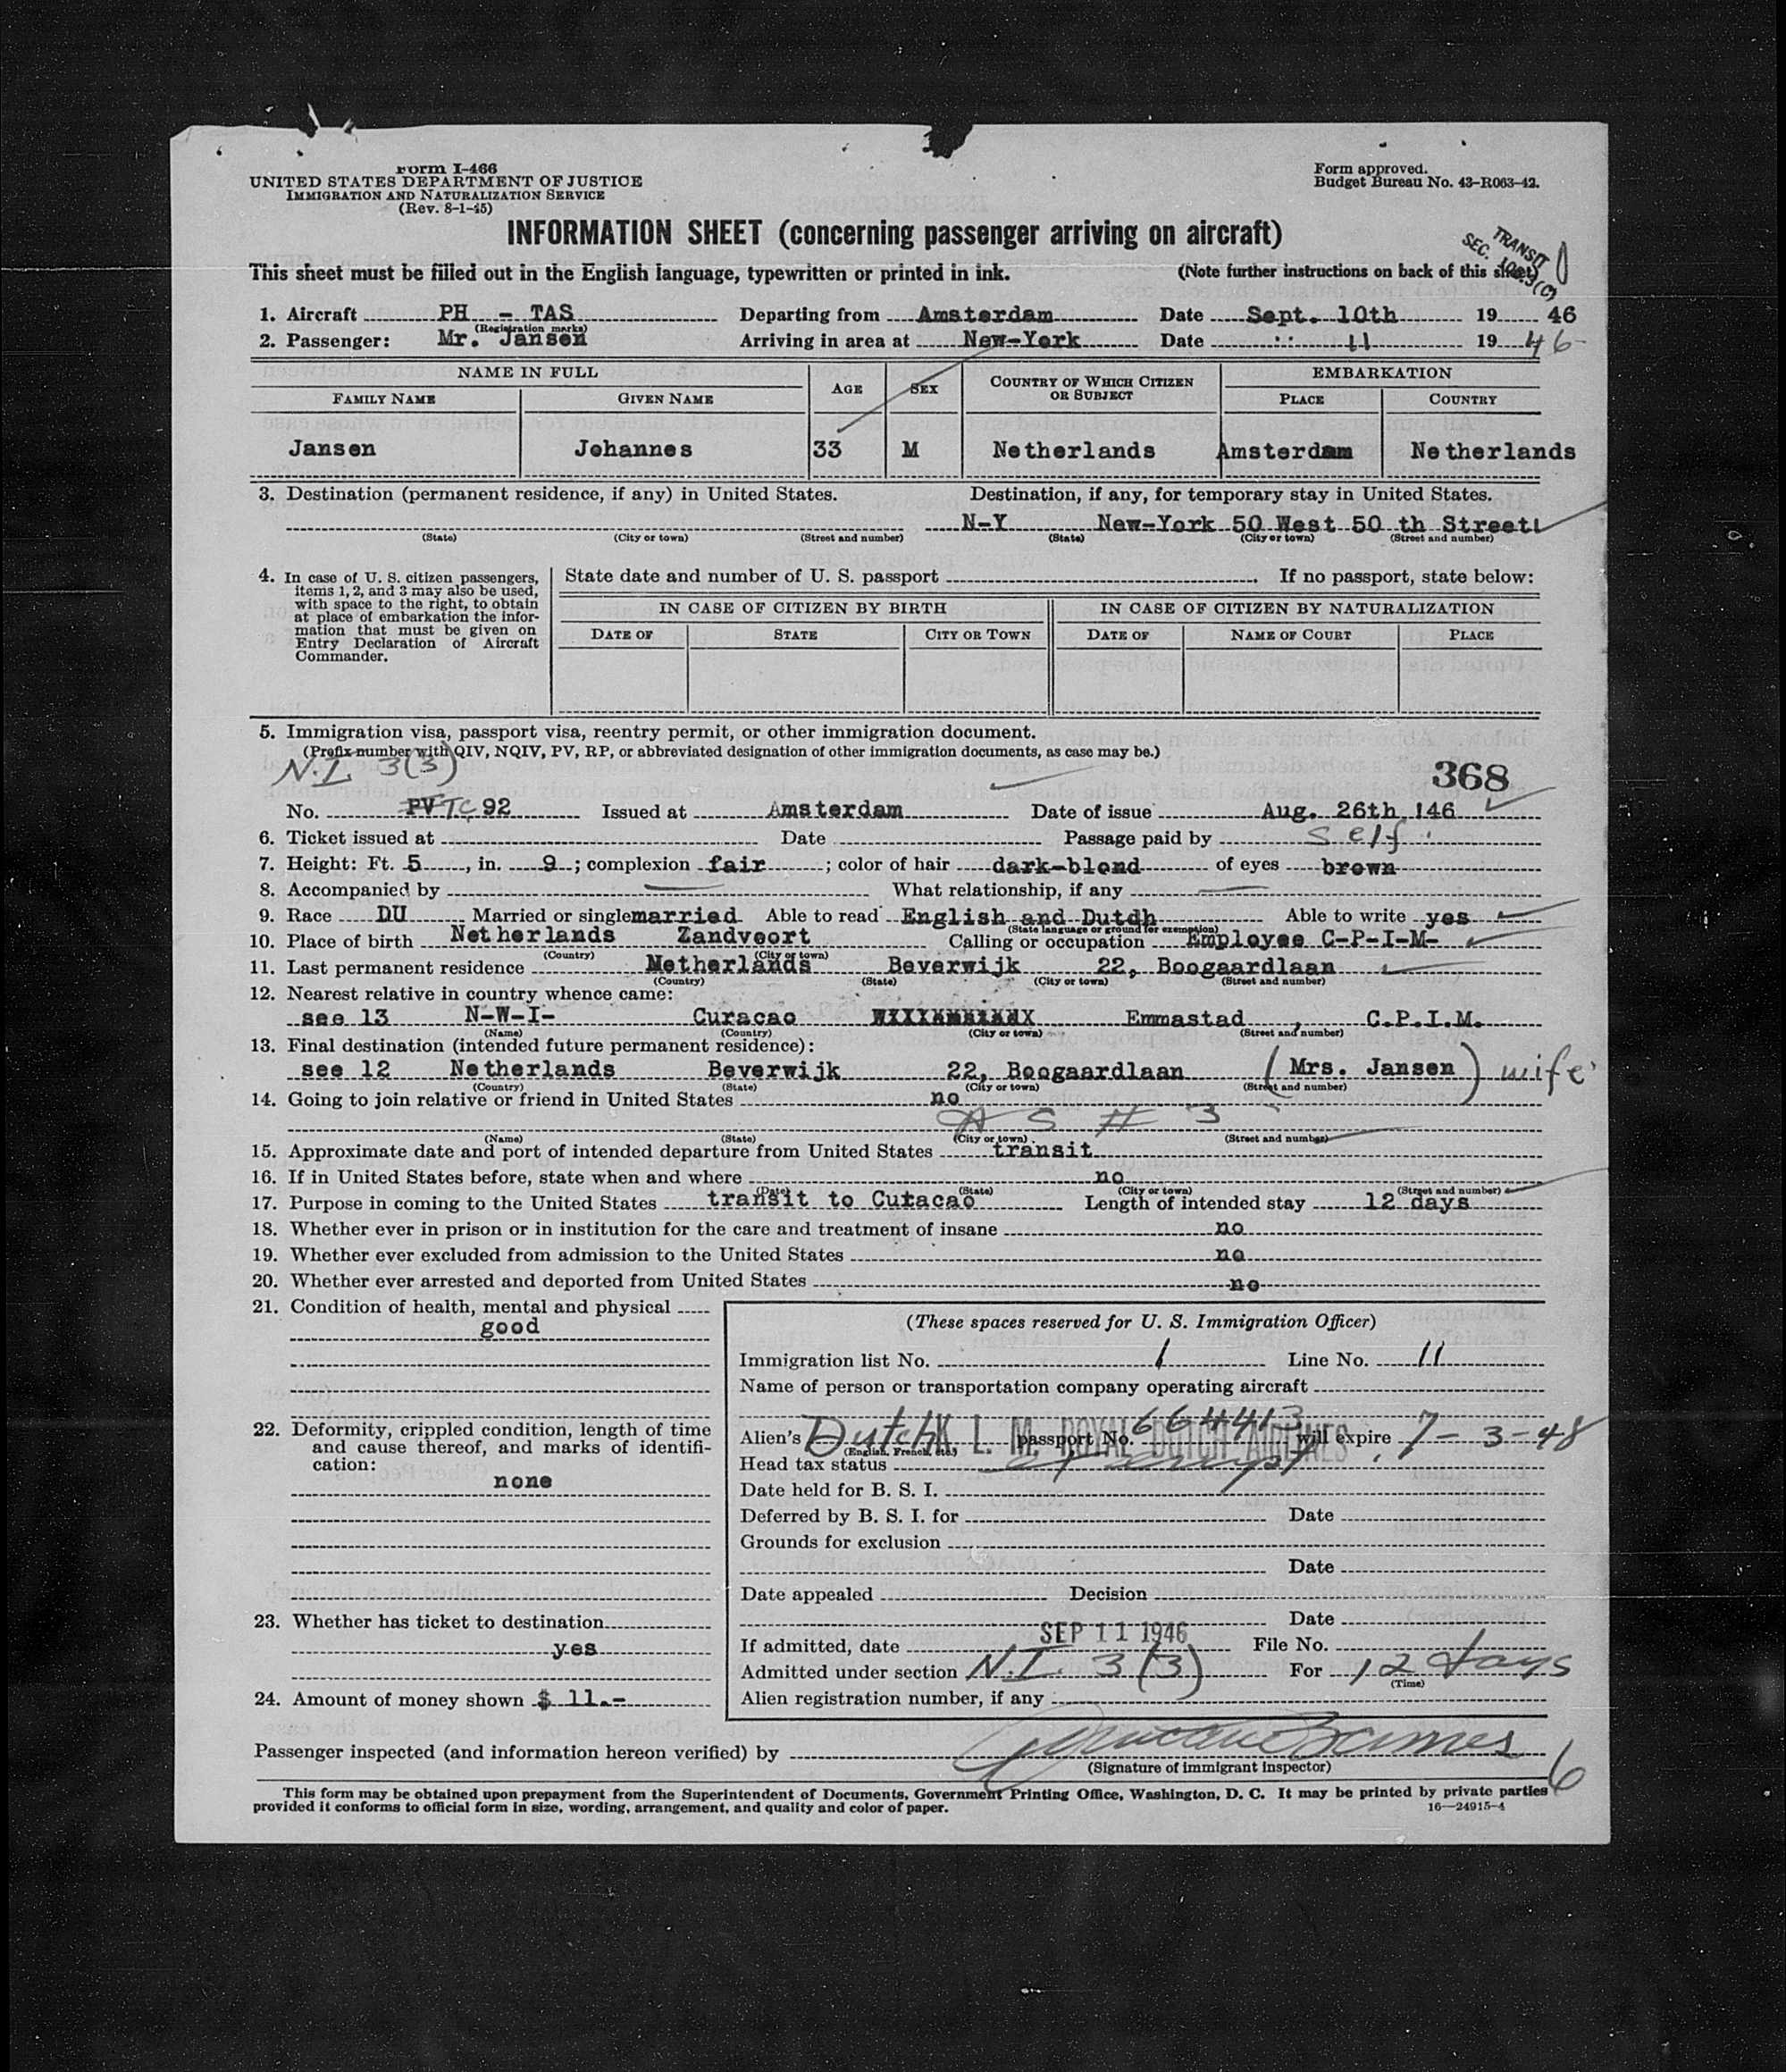 Form I-466
UNITED STATES DEPARTMENT OF JUSTICE
IMMIGRATION AND NATURALIZATION SERVICE
(Rev. 8-1-45)
Form approved.
Budget Bureau No. 43-R063-42.
INFORMATION SHEET (concerning passenger arriving on aircraft)
TRANSIT
SEC.
This sheet must be filled out in the English language, typewritten or printed in ink. (Note further instructions on back of this sheet)
1. Aircraft PH - TAS Departing from Amsterdam Date Sept. 10th 19 46
(Registration marks)
2. Passenger: Mr. Jansen Arriving in area at New-York Date 11 19 46
NAME IN FULL AGE SEX COUNTRY OF WHICH CITIZEN OR SUBJECT EMBARKATION
FAMILY NAME GIVEN NAME PLACE COUNTRY
Jansen Johannes 33 M Netherlands Amsterdam Netherlands
3. Destination (permanent residence, if any) in United States. Destination, if any, for temporary stay in United States.
N-Y New-York 50 West 50 th Street
(State) (City or town) (Street and number) (State) (City or town) (Street and number)
4. In case of U. S. citizen passengers, items 1, 2, and 3 may also be used, with space to the right, to obtain at place of embarkation the information that must be given on Entry Declaration of Aircraft Commander.
State date and number of U. S. passport If no passport, state below:
IN CASE OF CITIZEN BY BIRTH IN CASE OF CITIZEN BY NATURALIZATION
DATE OF STATE CITY OR TOWN DATE OF NAME OF COURT PLACE
5. Immigration visa, passport visa, reentry permit, or other immigration document.
(Prefix number with QIV, NQIV, PV, RP, or abbreviated designation of other immigration documents, as case may be.)
N.I 3(3) 368
No. PV TC 92 Issued at Amsterdam Date of issue Aug. 26th '46
6. Ticket issued at Date Passage paid by Self
7. Height: Ft. 5, in. 9; complexion fair; color of hair dark-blond of eyes brown
8. Accompanied by What relationship, if any
9. Race DU Married or single married Able to read English and Dutdh Able to write yes
(State language or ground for exemption)
10. Place of birth Netherlands Zandvoort Calling or occupation Employee C-P-I-M-
(Country) (City or town)
11. Last permanent residence Netherlands Beverwijk 22, Boogaardlaan
(Country) (State) (City or town) (Street and number)
12. Nearest relative in country whence came:
see 13 N-W-I- Curacao Emmastad , C.P.I.M.
(Name) (Country) (City or town) (Street and number)
13. Final destination (intended future permanent residence):
see 12 Netherlands Beverwijk 22, Boogaardlaan (Mrs. Jansen) wife
(Country) (State) (City or town) (Street and number)
14. Going to join relative or friend in United States no
A S # 3
(Name) (State) (City or town) (Street and number)
15. Approximate date and port of intended departure from United States transit
16. If in United States before, state when and where no
(Date) (State) (City or town) (Street and number)
17. Purpose in coming to the United States transit to Curacao Length of intended stay 12 days
18. Whether ever in prison or in institution for the care and treatment of insane no
19. Whether ever excluded from admission to the United States no
20. Whether ever arrested and deported from United States no
21. Condition of health, mental and physical
good
22. Deformity, crippled condition, length of time and cause thereof, and marks of identification:
none
23. Whether has ticket to destination
yes
24. Amount of money shown $ 11.-
(These spaces reserved for U. S. Immigration Officer)
Immigration list No. 1 Line No. 11
Name of person or transportation company operating aircraft
K. L. M. ROYAL DUTCH AIRLINES
Alien's Dutch passport No. 664413 will expire 7-3-48
(English, French, etc.)
Head tax status
Date held for B. S. I.
Deferred by B. S. I. for Date
Grounds for exclusion
Date
Date appealed Decision
Date
If admitted, date SEP 11 1946 File No.
Admitted under section N.I. 3(3) For 12 days
(Time)
Alien registration number, if any
Passenger inspected (and information hereon verified) by
(Signature of immigrant inspector)
6
This form may be obtained upon prepayment from the Superintendent of Documents, Government Printing Office, Washington, D. C. It may be printed by private parties
provided it conforms to official form in size, wording, arrangement, and quality and color of paper.
16—24915-4